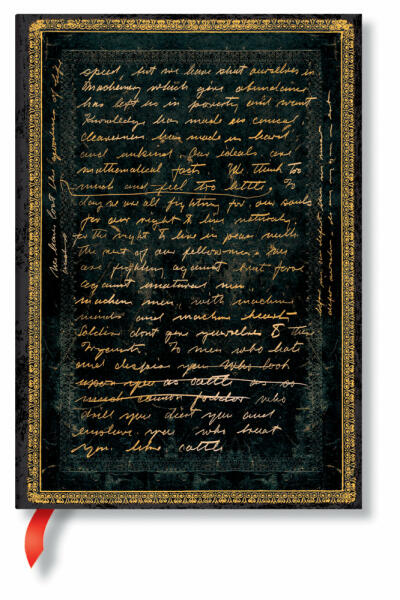 speed, but we have shut ourselves in
Machinery which gives abundance
has left us in poverty and want
Knowledge has made us cynical,
cleverness has made us hard
and unkind. Our ideals are
mathematical facts. We think too
much and feel too little, To
day we are all fighting for, our souls
for our right to live naturaly,
for the right to live in peace with
the rest of our fellow men. We
are fighting against that force
against unatural men
machine men, with machine
minds and machine hearts
Soldiers dont give yourselves to these
To men who hate
and despise you Who look
upon you as cattle as so
much cannon fodder who
drill you diet you and
enslave you who treat
you like cattle
We have lost the goodness of life